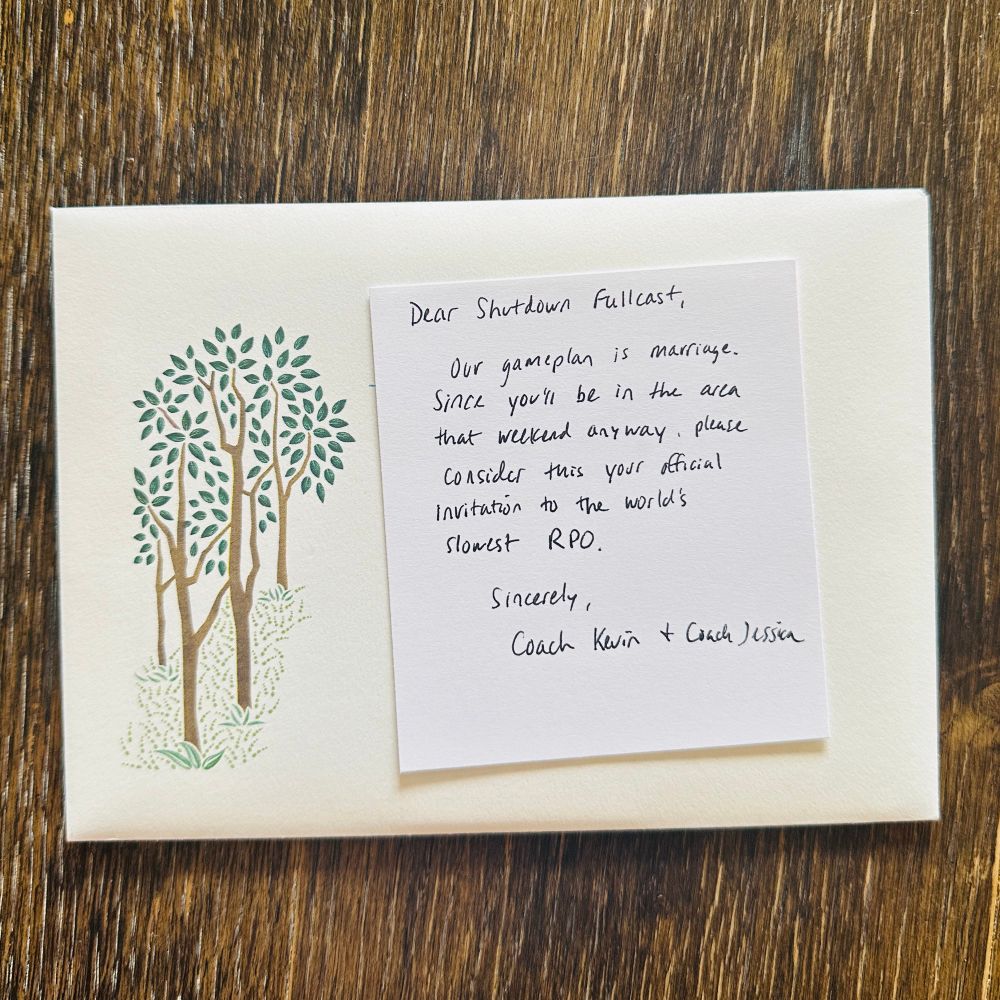 Dear Shutdown Fullcast,
Our gameplan is marriage.
Since you'll be in the area
that weekend anyway, please
consider this your official
invitation to the world's
slowest RPO.
Sincerely,
Coach Kevin + Coach Jessica